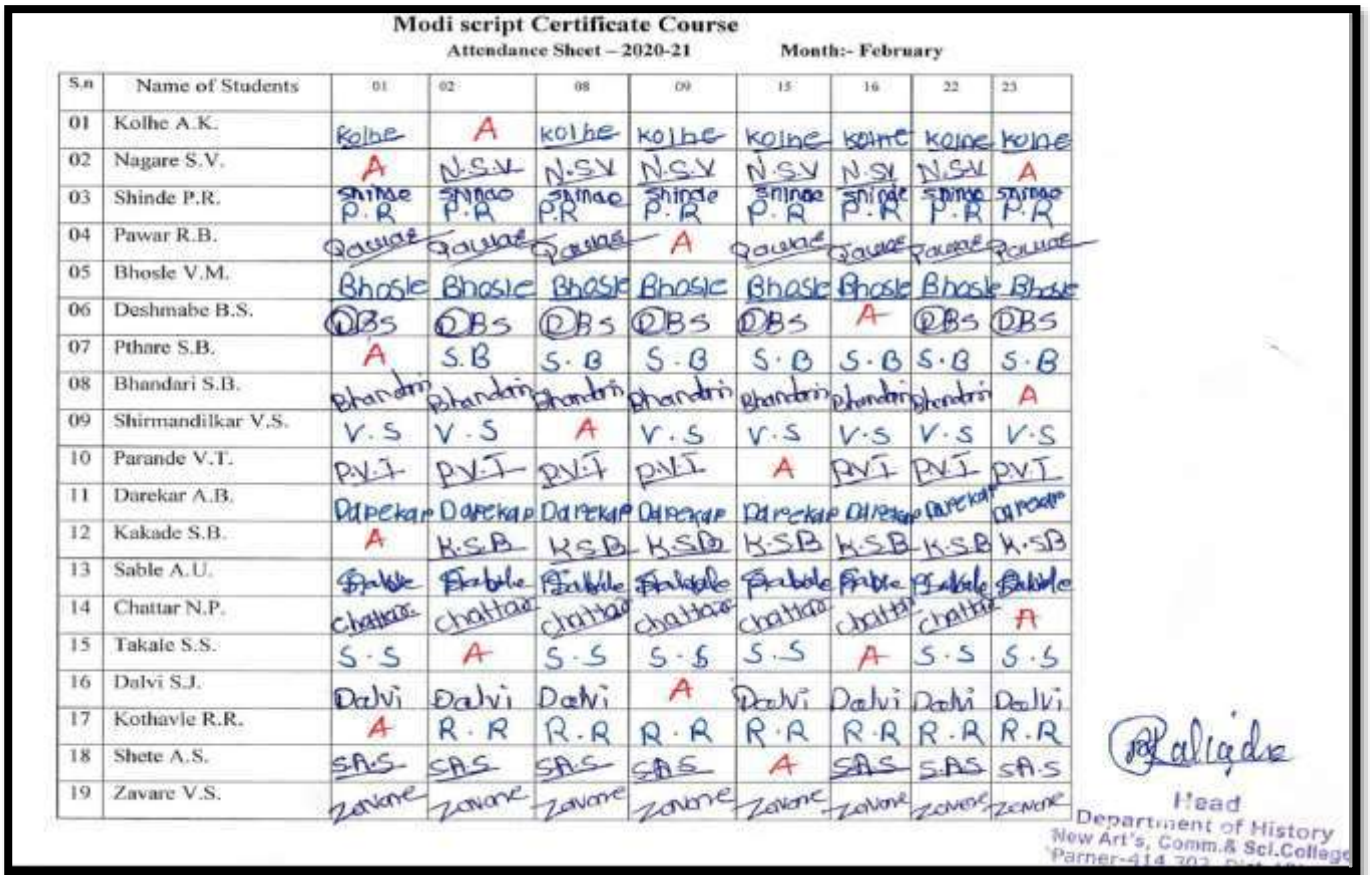 Modi script Certificate Course
Attendance Sheet – 2020-21 Month:- February
S.n Name of Students 01 02 08 09 15 16 22 23
01 Kolhe A.K. Kolhe A Kolhe Kolhe Kolhe Kolhe Kolhe Kolhe
02 Nagare S.V. A N.S.V N.SV N.S.V N.SV N.SV N.SV A
03 Shinde P.R. Shinde P.R Shinde P.R Shinde P.R Shinde P.R Shinde P.R Shinde P.R Shinde P.R Shinde P.R
04 Pawar R.B. Pawar Pawar Pawar A Pawar Pawar Pawar Pawar
05 Bhosle V.M. Bhosle Bhosle Bhosle Bhosle Bhosle Bhosle Bhosle Bhosle
06 Deshmabe B.S. DBS DBS DBS DBS DBS A DBS DBS
07 Pthare S.B. A S.B S.B S.B S.B S.B S.B S.B
08 Bhandari S.B. Bhandari Bhandari Bhandari Bhandari Bhandari Bhandari Bhandari A
09 Shirmandilkar V.S. V.S V.S A V.S V.S V.S V.S V.S
10 Parande V.T. P.V.T P.V.T P.V.T P.V.T A P.V.T P.V.T P.V.T
11 Darekar A.B. Darekar Darekar Darekar Darekar Darekar Darekar Darekar Darekar
12 Kakade S.B. A K.S.B K.S.B K.S.B K.S.B K.S.B K.S.B K.SB
13 Sable A.U. Sable Sable Sable Sable Sable Sable Sable Sable
14 Chattar N.P. Chattar Chattar Chattar Chattar Chattar Chattar Chattar A
15 Takale S.S. S.S A S.S S.S S.S A S.S S.S
16 Dalvi S.J. Dalvi Dalvi Dalvi A Dalvi Dalvi Dalvi Dalvi
17 Kothavle R.R. A R.R R.R R.R R.R R.R R.R R.R
18 Shete A.S. SA.S SA.S SA.S SA.S A SAS S.AS SA.S
19 Zavare V.S. Zavare Zavare Zavare Zavare Zavare Zavare Zavare Zavare
Head
Department of History
New Art's, Comm.& Sci.College
Parner-414 302